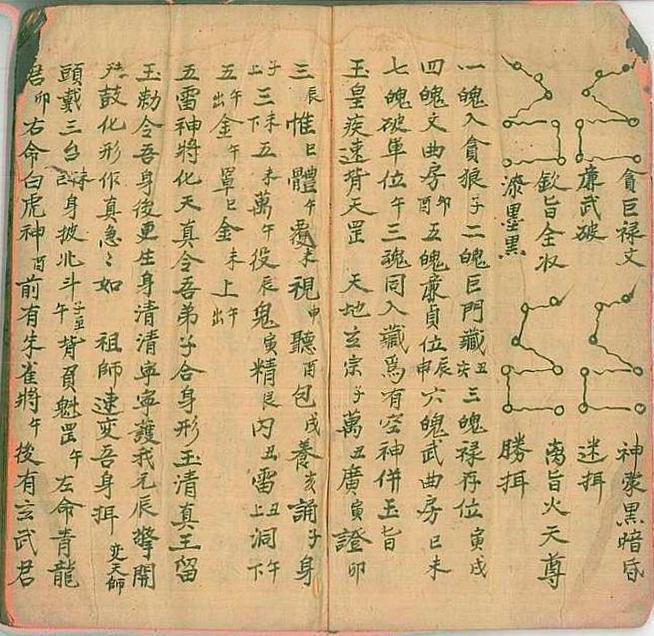 貪巨禄文 神蒙黒暗昏
廉武破 迷𢬵
欽旨全收 南旨火天尊
漆墨黑 勝𢬵
一魄入貪狼子二魄巨門藏丑亥三魄禄存位寅戌
四魄文曲房卯酉五魄廉貞位辰申六魄武曲房巳未
七魄破軍位午三魂同入藏爲有空神併玉旨
玉皇疾速背天罡 天地玄宗子萬丑廣寅證卯
三辰惟巳體午覆未視申聽酉包戌養亥誦子身
上子三下未五未萬午役辰鬼寅精艮内丑雷上丑洞下午
五出午金午罩巳金未上出午
五雷神將化天真令吾弟子合身形玉清真王留
玉勅令吾身後更生身清清寧寧護我元辰擎開
鼓化形作真急々如 祖師速變吾身𢬵 变天師
頭戴三台未身披北斗午子至背負魁罡午左命青龍
君卯右命白虎神酉前有朱雀將午後有玄武君